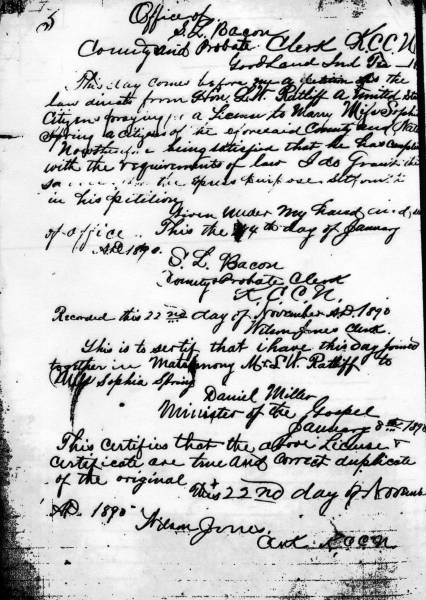 5 Office of
S. L. Bacon
County and Probate Clerk K.C.C.N
Goodland Ind Ter
This day comes before me a the
law directs from Hon. L. W. Ratliff A United States
Citizen praying a License to Marry Miss Sophia
Spring a citizen of the aforesaid County and Nation
being satisfied that he has complied
with the requirements of law I do Grant the
sa for the express purpose set forth
in his petition
Given under my hand and
of office. This the 4th day of January
A.D. 1890.
S. L. Bacon
County & Probate Clerk
K.C.C.N.
Recorded this 22nd day of November A.D. 1890
Wilson Jones Clerk.
This is to sertify that i have this day joined
together in Matrimony Mr L. W. Ratliff to
Miss Sophia Spring
Daniel Miller
Minister of the Gospel
January 8th 1890
This Certifies that the above License &
Certificate are true and correct duplicate
of the original
This 22nd day of Novem
A.D. 1890
Wilson Jones
Clk K.C.C.N.